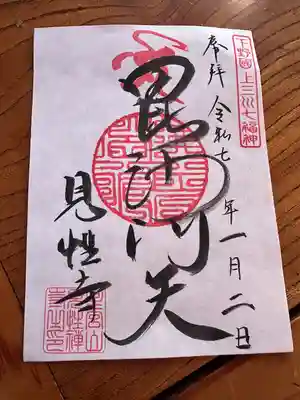 下野國上三川七福神
奉拝
令和七年一月二日
毘沙門天
見性寺